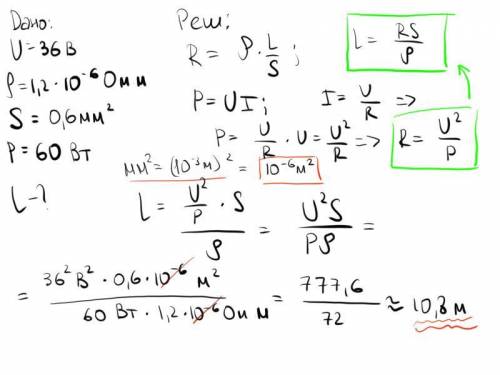 Дано:
U=36В
ρ=1,2·10⁻⁶Ом м
S=0,6мм²
P=60 Вт
L-?
Реш:
R= ρ·L/S;
L= RS/ρ
P=UI; I=U/R =>
P= U/R · U=U²/R => R= U²/P
мм²=(10⁻³м)²= 10⁻⁶м²
L= U²/P · S / ρ = U²S/Pρ =
= 36²В²·0,6·10⁻⁶ м² / 60 Вт·1,2·10⁻⁶Ом м = 777,6/72 ≈ 10,8 м